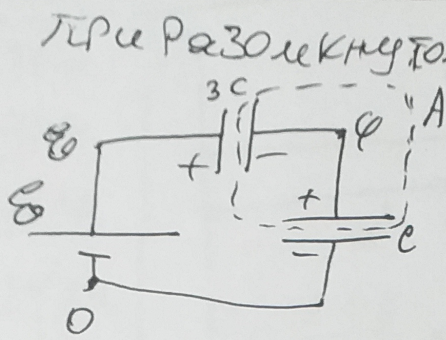 При разомкнуто
3C
A
ℰ
φ
+ −
+
ℰ
C
−
0